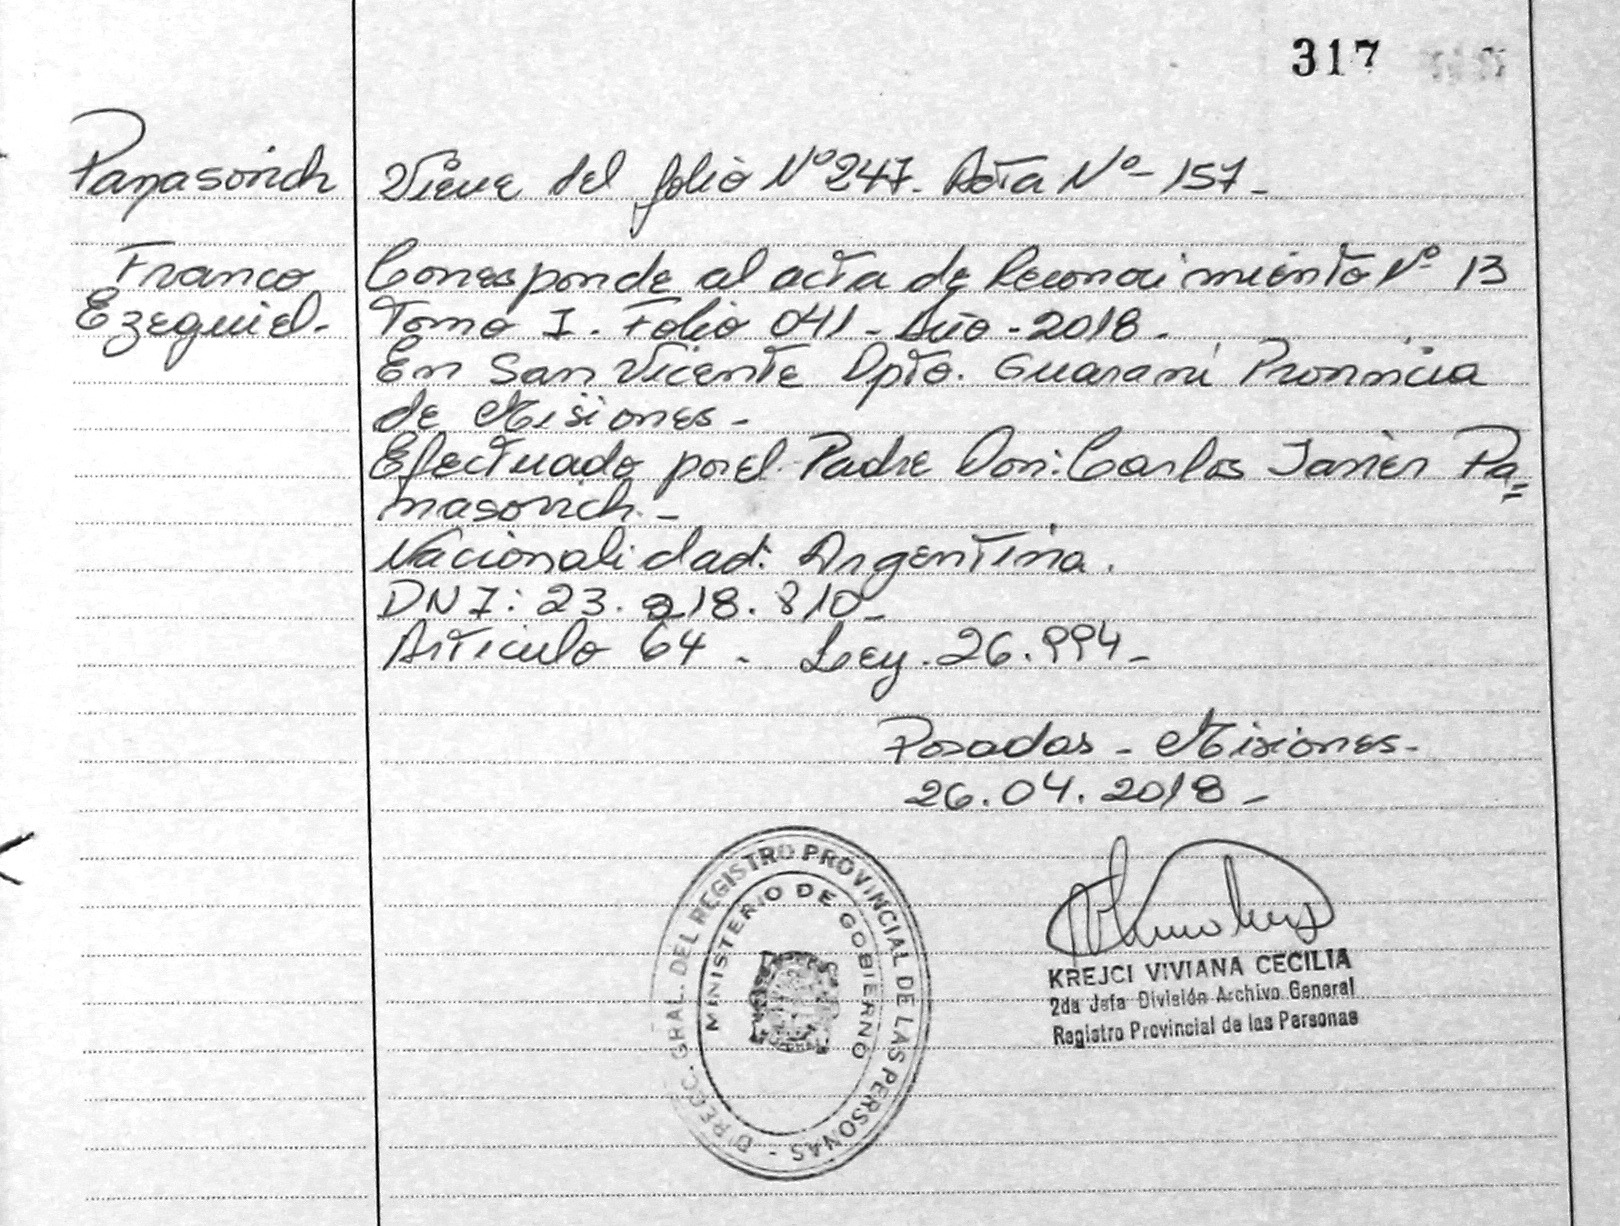 317
Panasovich
Viene del folio Nº 247. Acta Nº - 157-
Franco
Ezequiel.
Corresponde al acta de Reconocimiento Nº 13
Tomo I. Folio 041 - Año - 2018.
En San Vicente Dpto. Guaraní Provincia
de Misiones -
Efectuado por el Padre Don: Carlos Javier Pa=
nasovich -
Nacionalidad: Argentina.
DNI: 23.218.810-
Artículo 64 - Ley. 26.994-
Posadas - Misiones-
26.04.2018-
DIRECC. GRAL. DEL REGISTRO PROVINCIAL DE LAS PERSONAS -
MINISTERIO DE GOBIERNO
KREJCI VIVIANA CECILIA
2da Jefa División Archivo General
Registro Provincial de las Personas